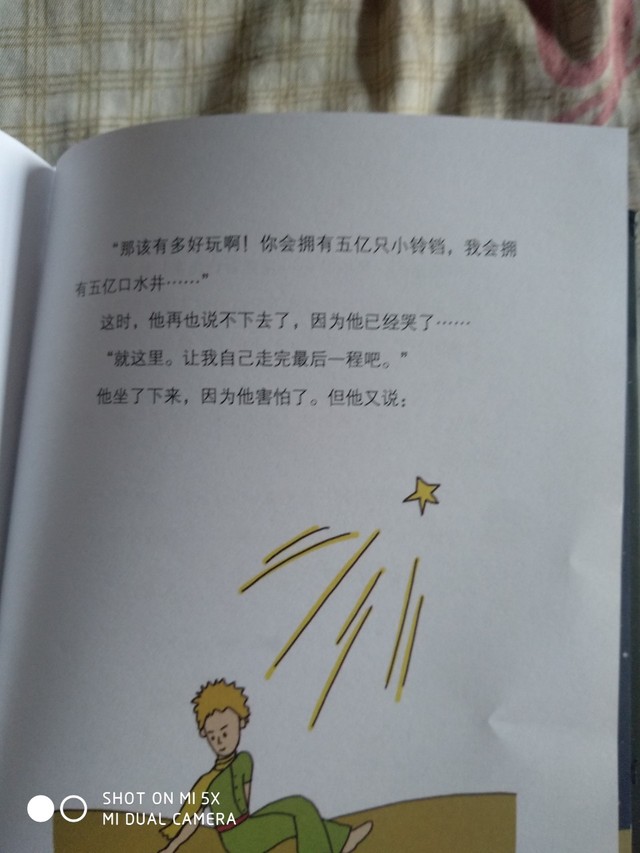 “那该有多好玩啊！你会拥有五亿只小铃铛，我会拥
有五亿口水井……”
这时，他再也说不下去了，因为他已经哭了……
“就这里。让我自己走完最后一程吧。”
他坐了下来，因为他害怕了。但他又说：
SHOT ON MI 5X
MI DUAL CAMERA